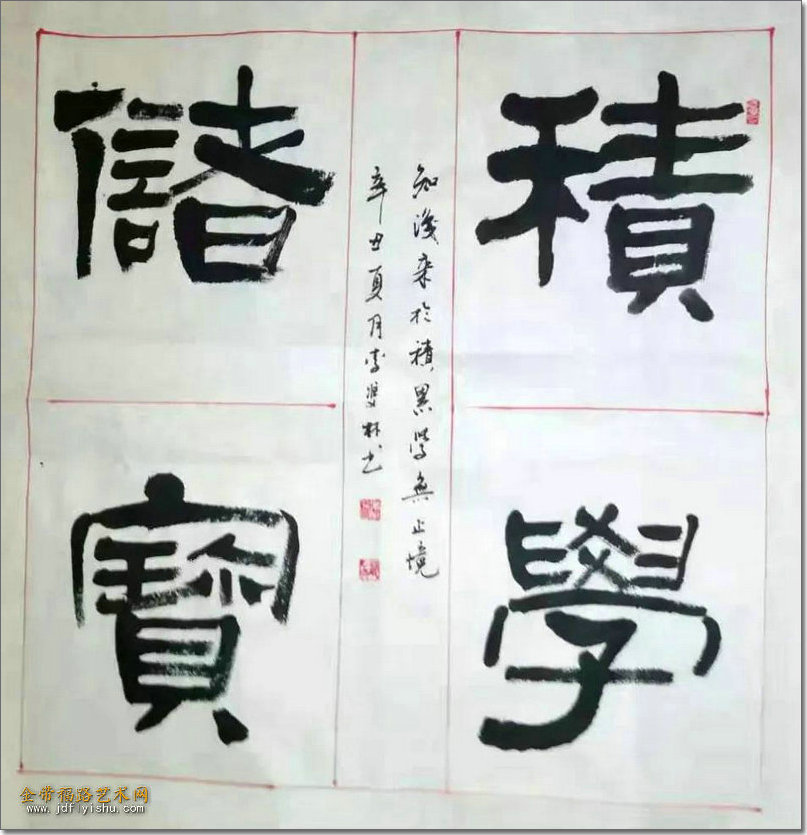 積學
儲寶
知淺來於積累學無止境
辛丑夏月李
書
金帝福路艺术网
www.jdflyishu.com